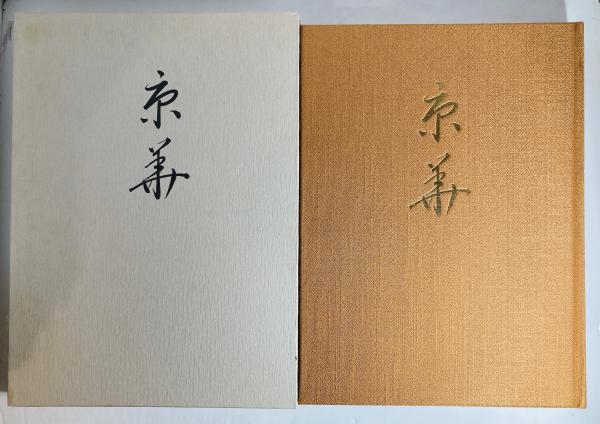 京華
京華